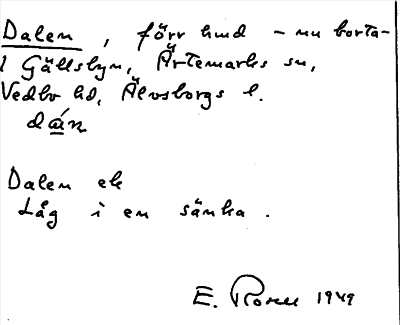 Dalen, förr hmd – nu borta –
i Gällsbyn, Ärtemarks sn,
Vedbo hd, Älvsborgs l.
dán
Dalen ek
Låg i en sänka.
E. 1949